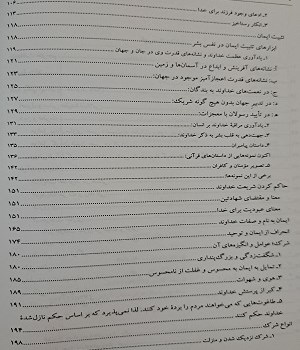 ۲. ادعای وجود فرزند برای خدا ۱۰۶
۳. انکار رستاخیز ۱۱۳
تثبیت ایمان ۱۱۸
ابزارهای تثبیت ایمان در نفس بشر ۱۱۸
۱. یادآوری عظمت خداوند و نشانه‌های قدرت وی در جان و جهان ۱۱۹
آ: نشانه‌های آفرینش و ابداع در آسمان‌ها و زمین ۱۲۱
ب: نشانه‌های قدرت اعجازآمیز موجود در جهان: ۱۲۳
ج: در نعمت‌های خداوند به بندگان: ۱۲۵
د: در تدبیر جهان بدون هیچ گونه شریک: ۱۲۷
هـ: در تأیید رسولان با معجزات: ۱۲۹
۲. یادآوری مراقبة خداوند بر انسان: ۱۳۱
۳. جهت‌دهی به قلب بشر به ذکر خداوند: ۱۳۳
۴. داستان پیامبران: ۱۳۵
اکنون نمونه‌هایی از داستان‌های قرآنی: ۱۳۶
۵. تصویر مؤمنان و کافران ۱۴۲
برخی از این نمونه‌ها: ۱۴۲
حاکم کردن شریعت خداوند ۱۵۱
معنا و مقتضای شهادتین ۱۵۱
معنای عبودیت برای خدا ۱۵۱
ایمان به نام و صفات خداوند ۱۶۵
انحراف از ایمان و توحید ۱۷۴
شرک؛ عوامل و انگیزه‌های آن ۱۸۰
۱. شگفت‌زدگی و بزرگ‌پنداری ۱۸۰
۲. تمایل به ایمان به محسوس و غفلت از نامحسوس ۱۸۵
۳. هوی و شهوات ۱۸۹
۴. کبر از پرستش خداوند ۱۹۱
۵. طاغوت‌هایی که می‌خواهند مردم را بردة خود کنند، لذا نمی‌پذیرد که بر اساس حکم نازل شدة
خداوند حکم کنند ۱۹۴
انواع شرک:
۱. شرک نزدیک شدن و منزلت ۱۹۸